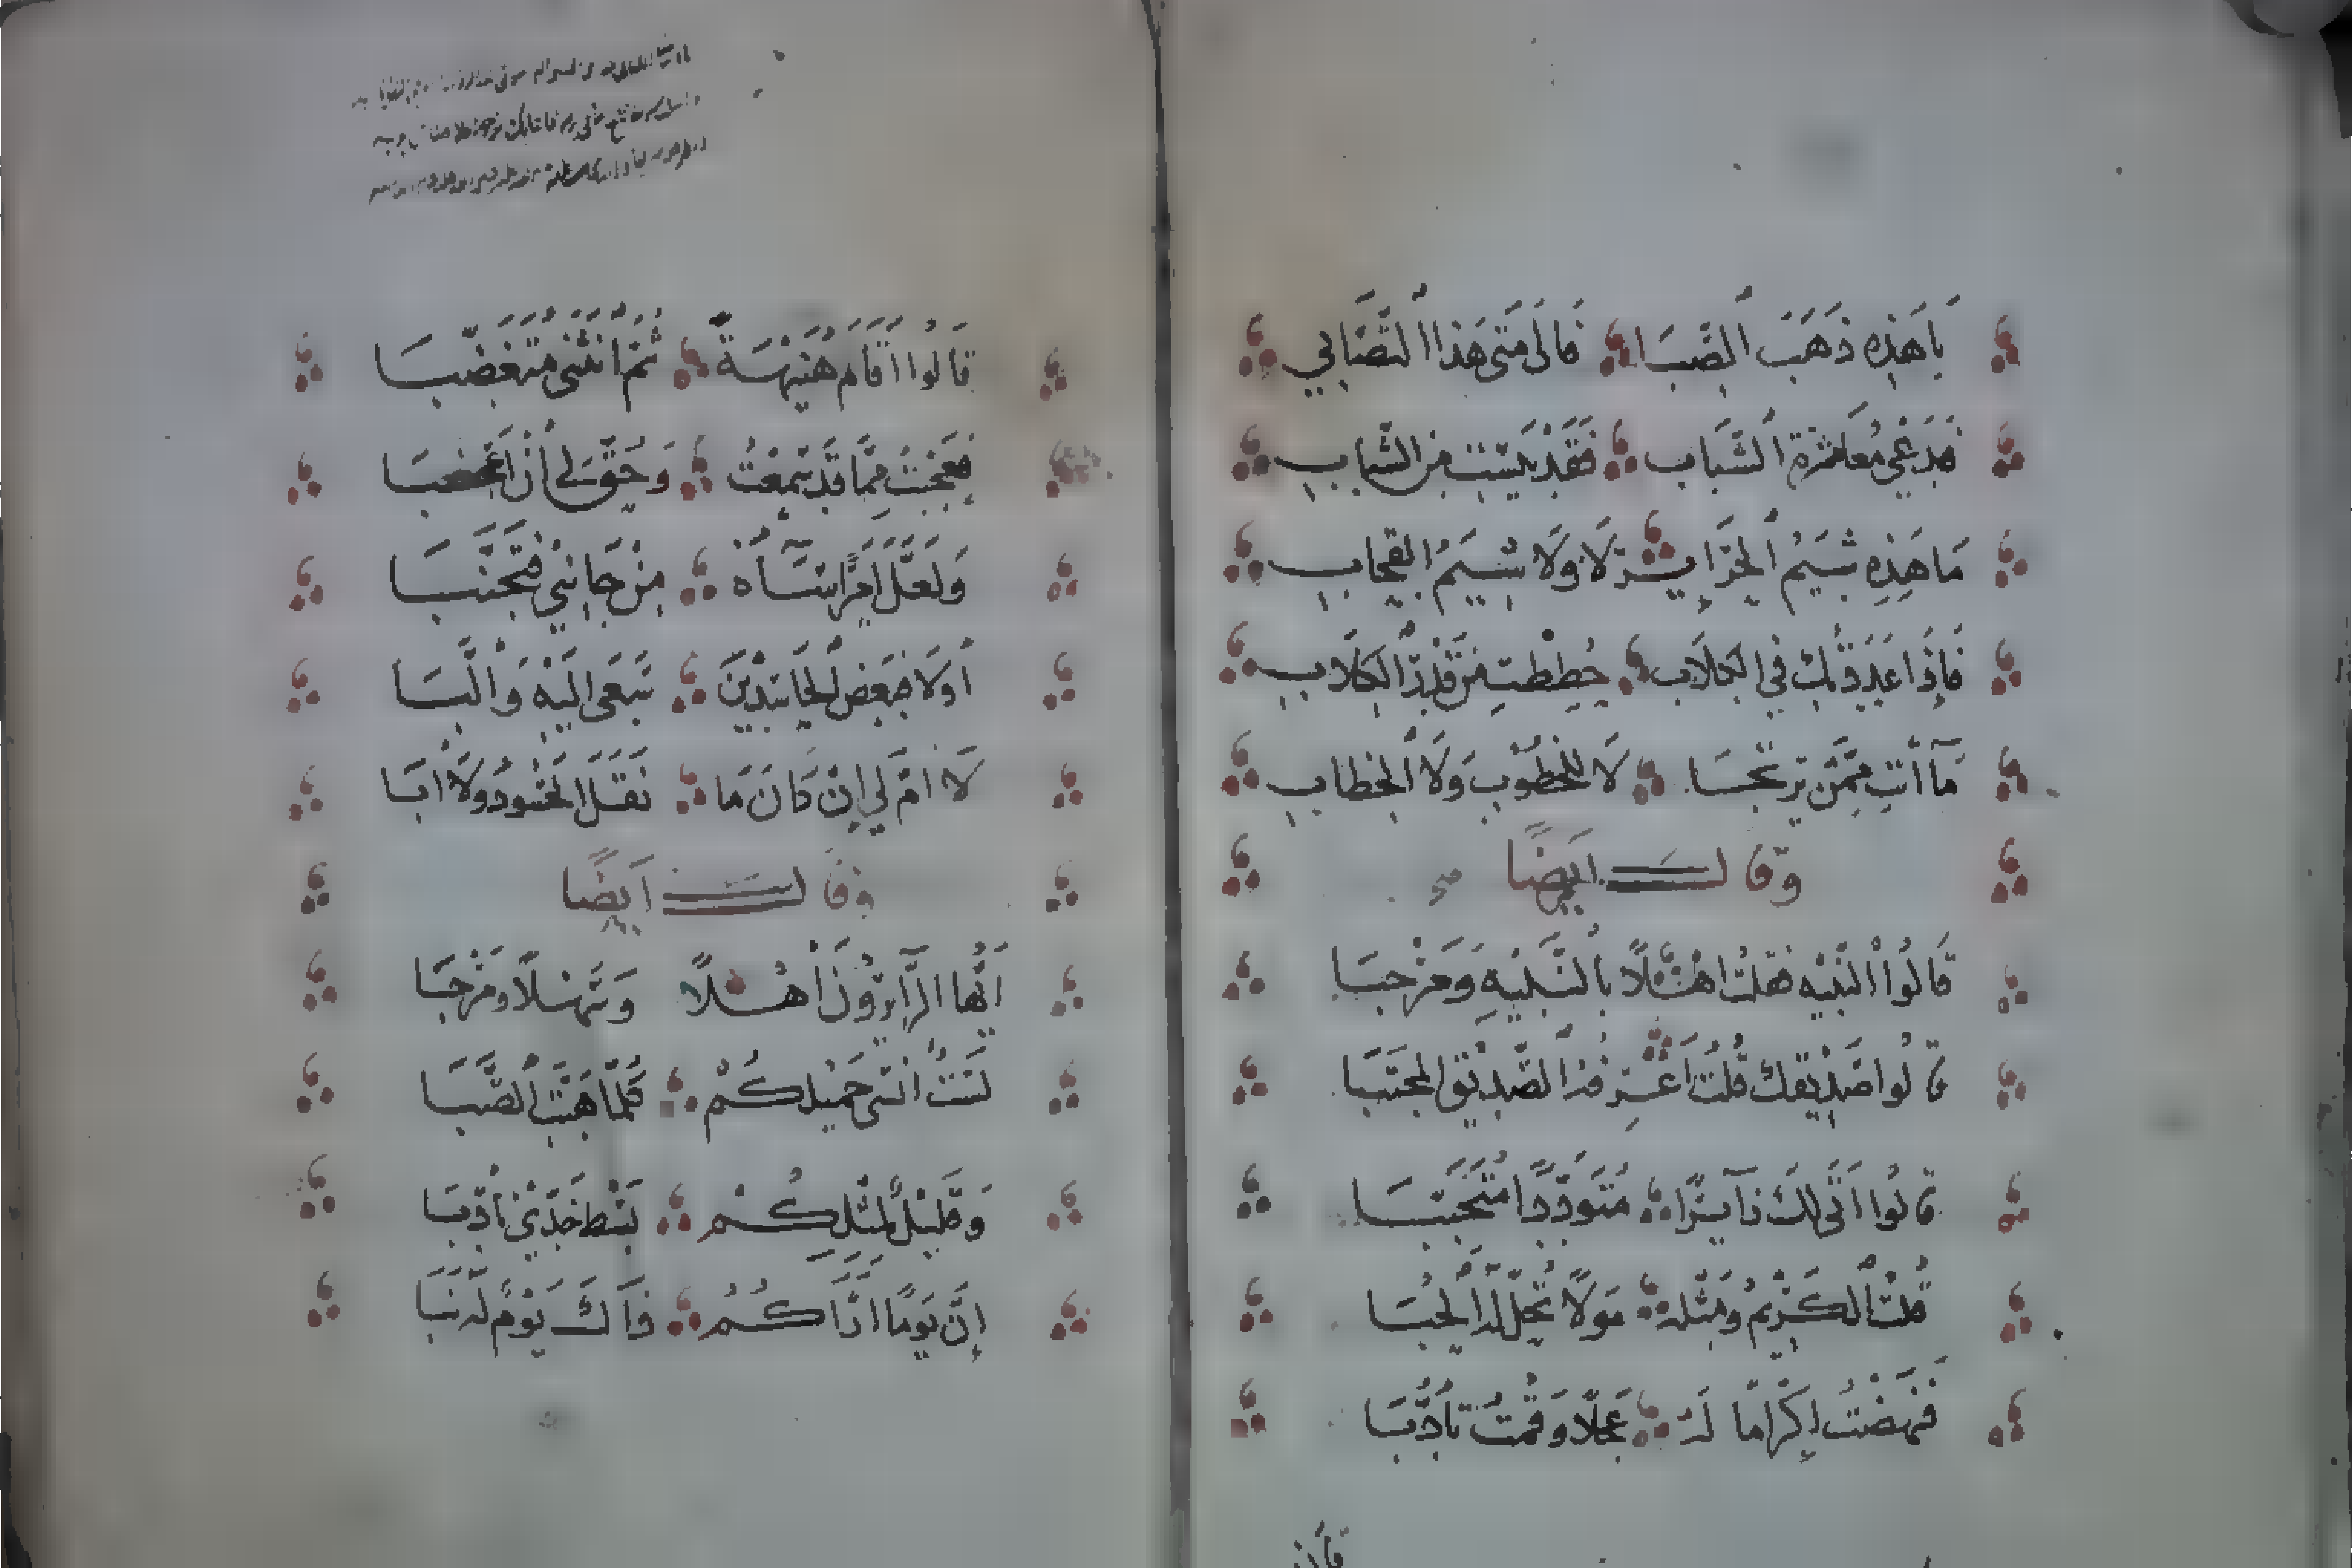 يَا هَذِهِ ذَهَبَ ٱلصِّبَا فَإِلَى مَتَى هَذَا ٱلتَّصَابِي
فَدَعِي مُعَاشَرَةَ ٱلشَّبَابِ فَقَدْ يَئِسْتِ مِنَ الشَّبَابِ
مَا هَذِهِ شِيَمُ ٱلْحَرَايِرِ لَا وَلَا شِيَمُ القِحَابِ
فَإِذَا عَدَدْتُكِ فِي الكِلَابِ حُطِطْتِ مِنْ قَدْرِ الكِلَابِ
مَآ أَنْتِ مِمَّنْ يُرْتَجَى لَا لِلْخُطُوبِ وَلَا ٱلْخِطَابِ
وقال أيضًا
قَالُوا النَّبِيْهِ فَقُلْتُ أَهْلًا بِالنَّبِيْهِ وَمَرْحَبَا
قالُوا صَدِيْقُكَ قُلْتُ أَعْرِفُهُ الصَّدِيْقَ المُجْتَبَا
قالُوا أَتَى لَكَ زَآيِرًا مُتَوَدِّدًا مُتَحَبِّبَا
قُلْتُ ٱلْكَرِيْمُ وَمِثْلُهُ مَوْلًا تُحَلُّ لَهُ ٱلْحُبَا
فَنَهَضْتُ إِكْرَامًا لَهُ عَجِلًا وَقُمْتُ تَأَدُّبَا
قَالُوا أَقَامَ هُنَيْهَةً ثُمَّ ٱنْثَنَى مُتَغَضِّبَا
فَعَجِبْتُ مِمَّا قَدْ سَمِعْتُ وَحُقَّ لِي أَنْ أَعْجَبَا
وَلَعَلَّ أَمْرًا سَآءَهُ مِنْ جَانِبِي فَتَجَنَّبَا
أَوْ لَا فَبَعْضُ الحَاسِدِيْنَ سَعَى إِلَيْهِ وَأَلَّبَا
لَا أُمَّ لِي إِنْ كَانَ مَا نَقَلَ الحَسُودُ وَلَا أَبَا
وقال أيضًا
أَيُّهَا الزَّايِرُوْنَ أَهْلًا وَسَهْلًا وَمَرْحَبَا
لَسْتُ أَنْسَى جَمِيْلَكُمْ كُلَّمَا هَبَّتِ ٱلصَّبَا
وَقَلِيْلٌ لِمِثْلِكُمْ بَسْطُ خَدِّيْ تَأَدُّبَا
إِنَّ يَوْمًا أَرَاكُمُ ذَاكَ يَوْمٌ لَهُ نَبَا